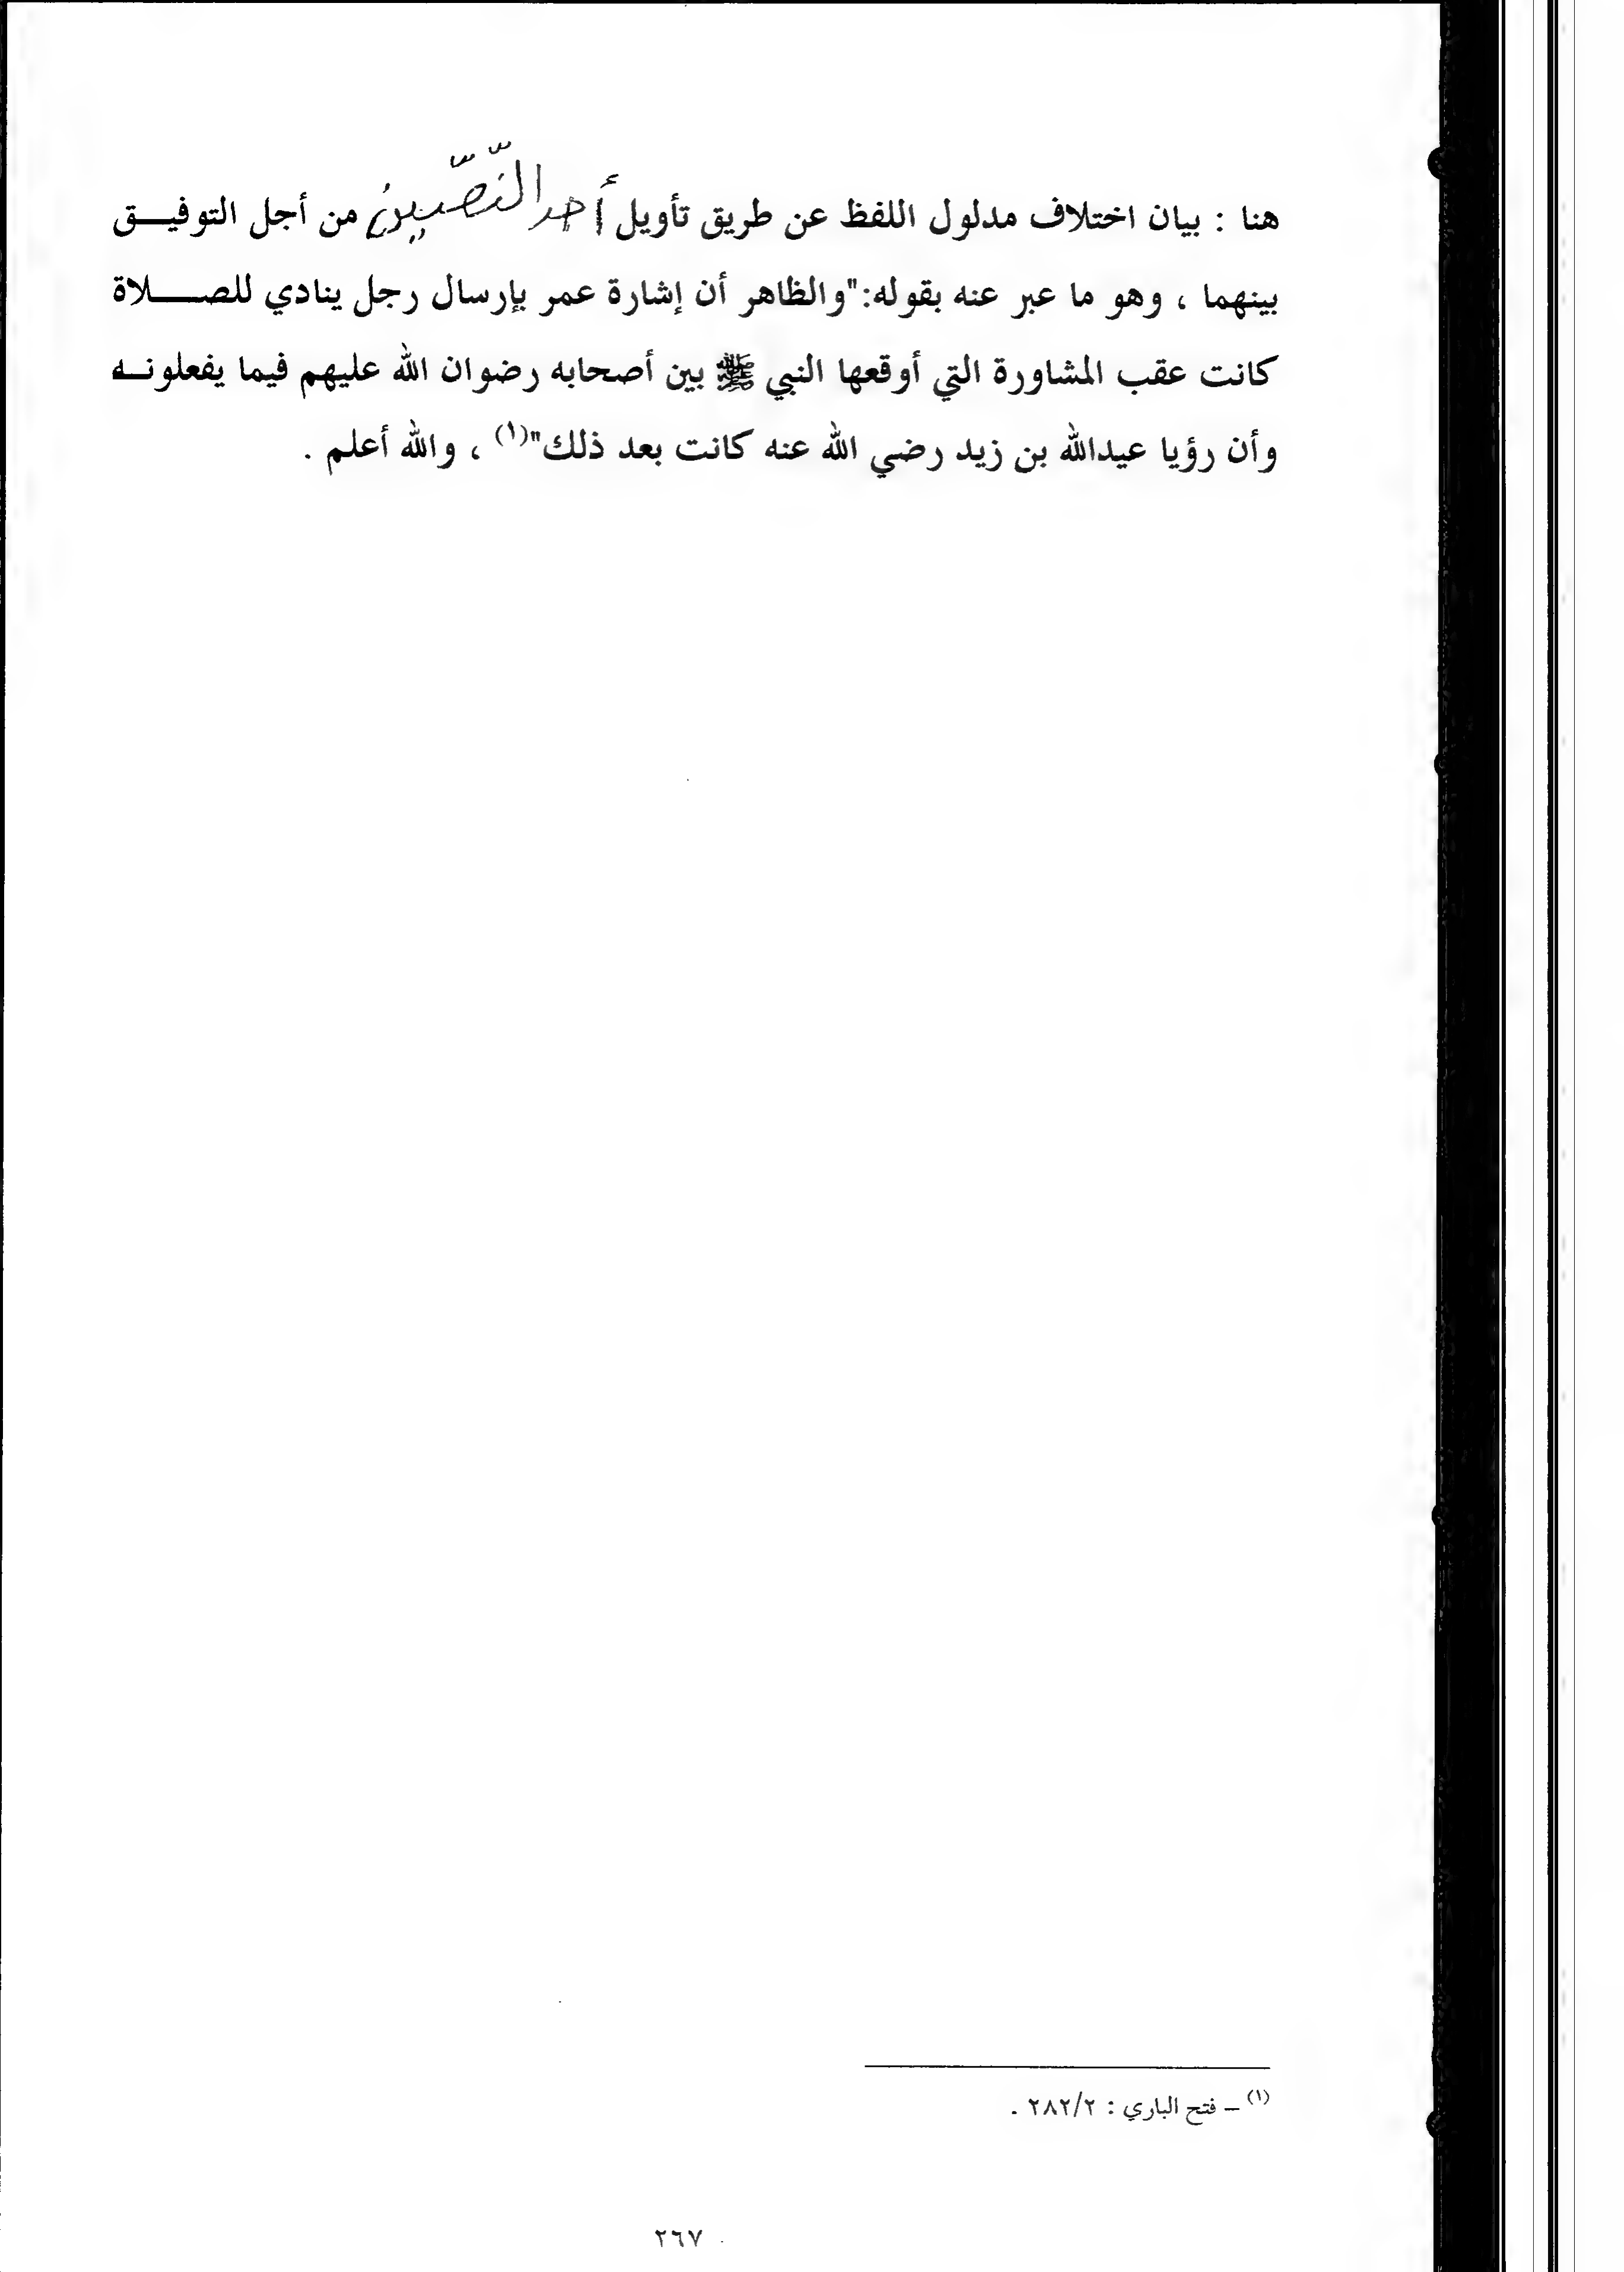 هنا : بيان اختلاف مدلول اللفظ عن طريق تأويل أحد النصّين من أجل التوفيــق
بينهما ، وهو ما عبر عنه بقوله:"والظاهر أن إشارة عمر بإرسال رجل ينادي للصـــلاة
كانت عقب المشاورة التي أوقعها النبي ﷺ بين أصحابه رضوان الله عليهم فيما يفعلونـه
وأن رؤيا عبدالله بن زيد رضي الله عنه كانت بعد ذلك"(١) ، والله أعلم .
(١) – فتح الباري : ٢٨٢/٢ .
٢٦٧